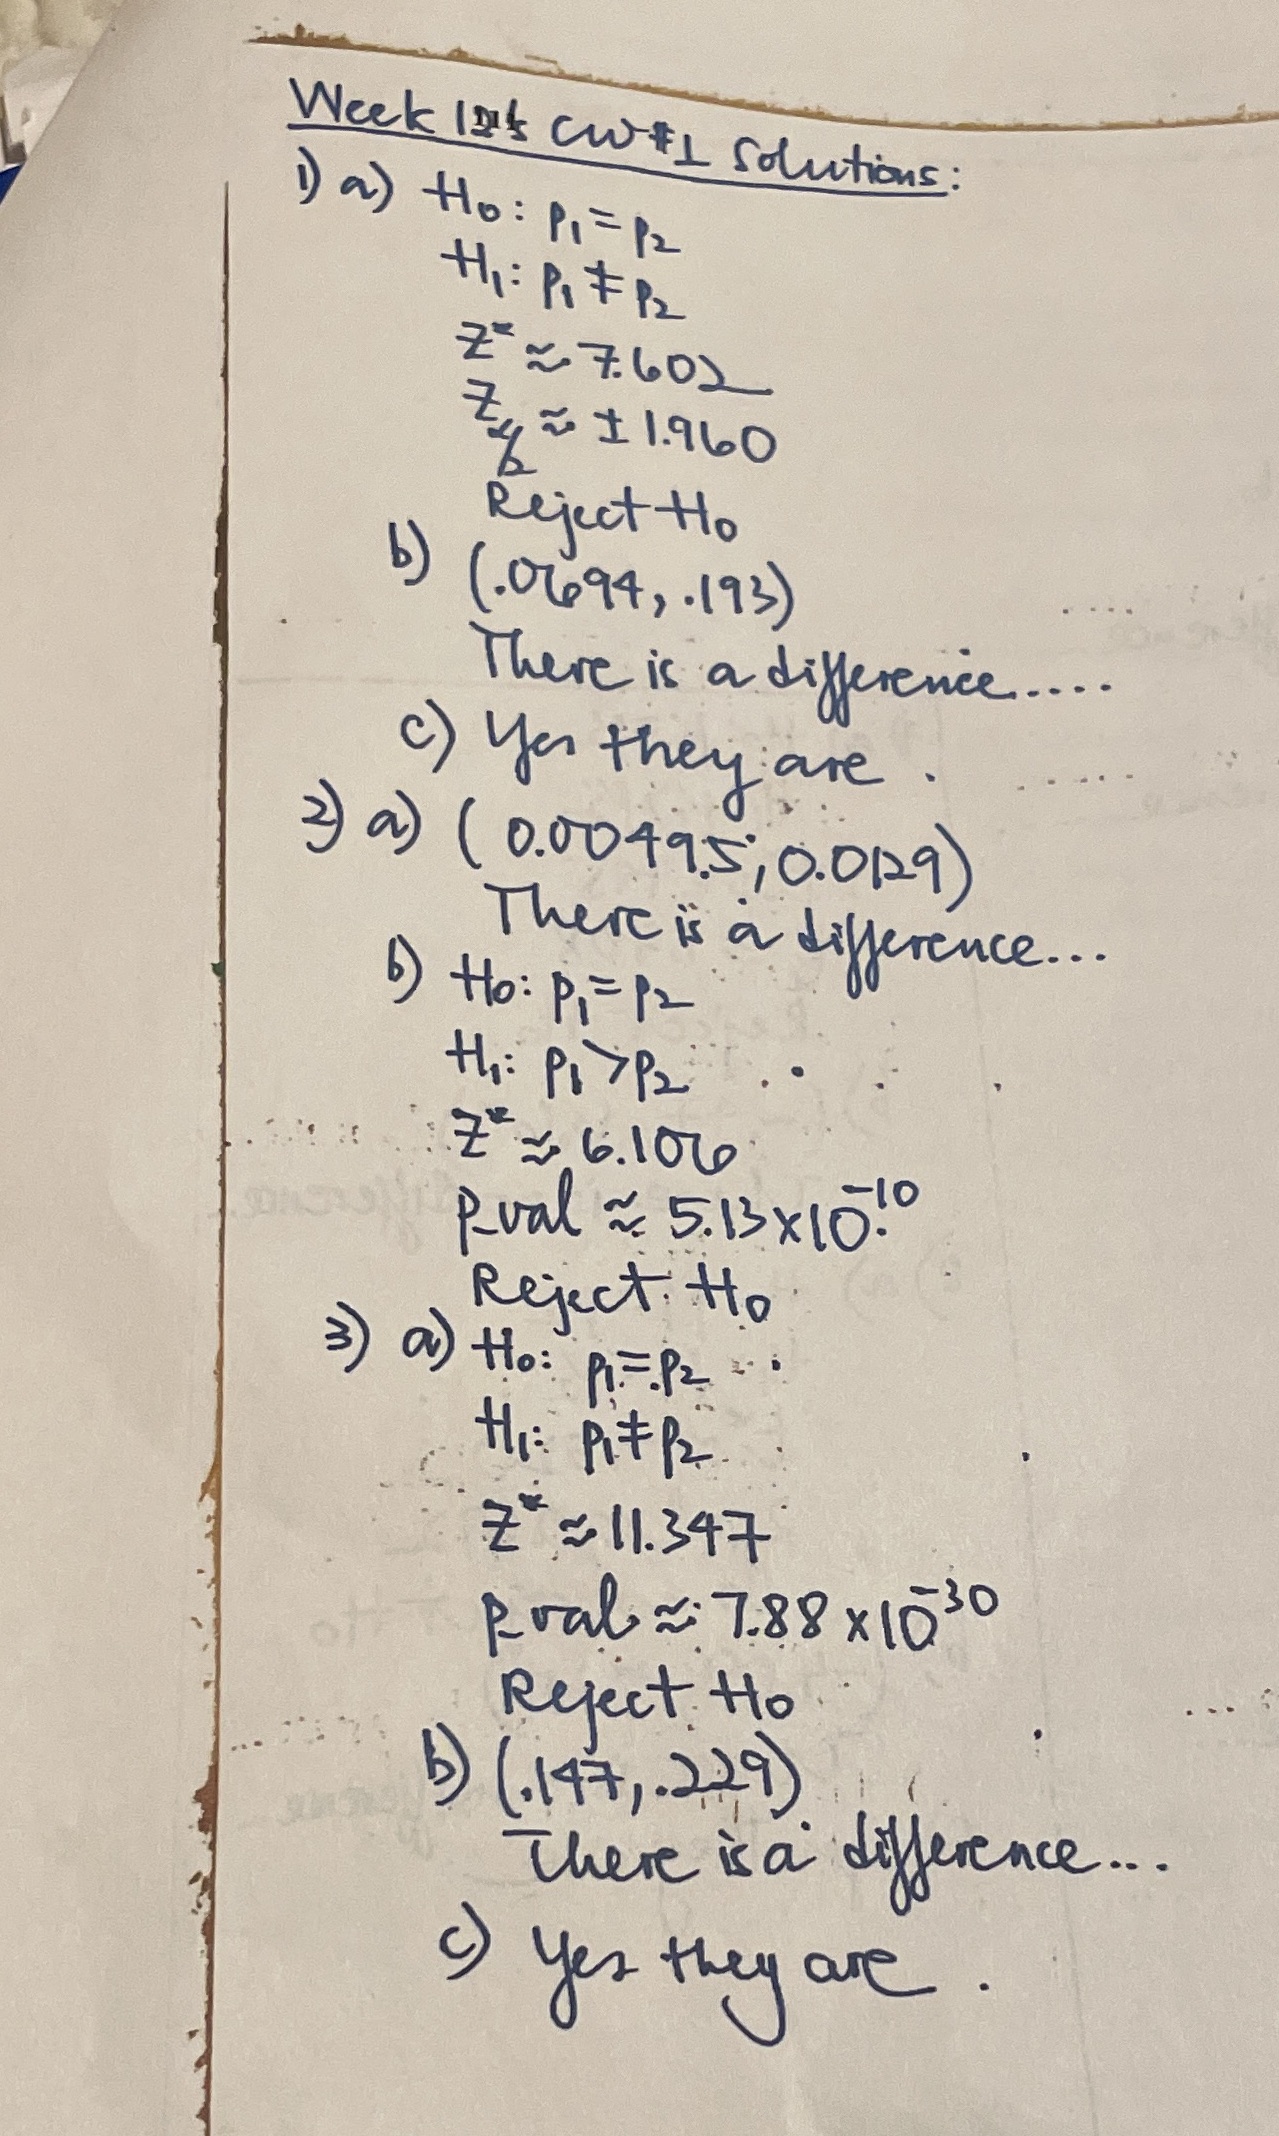 Week CW #1 Solutions:
1) a) H₀: p₁ = p₂
H₁: p₁ ≠ p₂
z* ≈ 7.602
z_α/2 ≈ ± 1.960
Reject H₀
b) (.0694, .193)
There is a difference.....
c) Yes they are.
2) a) (0.00495, 0.0129)
There is a difference...
b) H₀: p₁ = p₂
H₁: p₁ > p₂
z* ≈ 6.106
p_val ≈ 5.13 x 10⁻¹⁰
Reject H₀
3) a) H₀: p₁ = p₂
H₁: p₁ ≠ p₂
z* ≈ 11.347
p_val ≈ 7.88 x 10⁻³⁰
Reject H₀
b) (.147, .229)
There is a difference...
c) Yes they are.